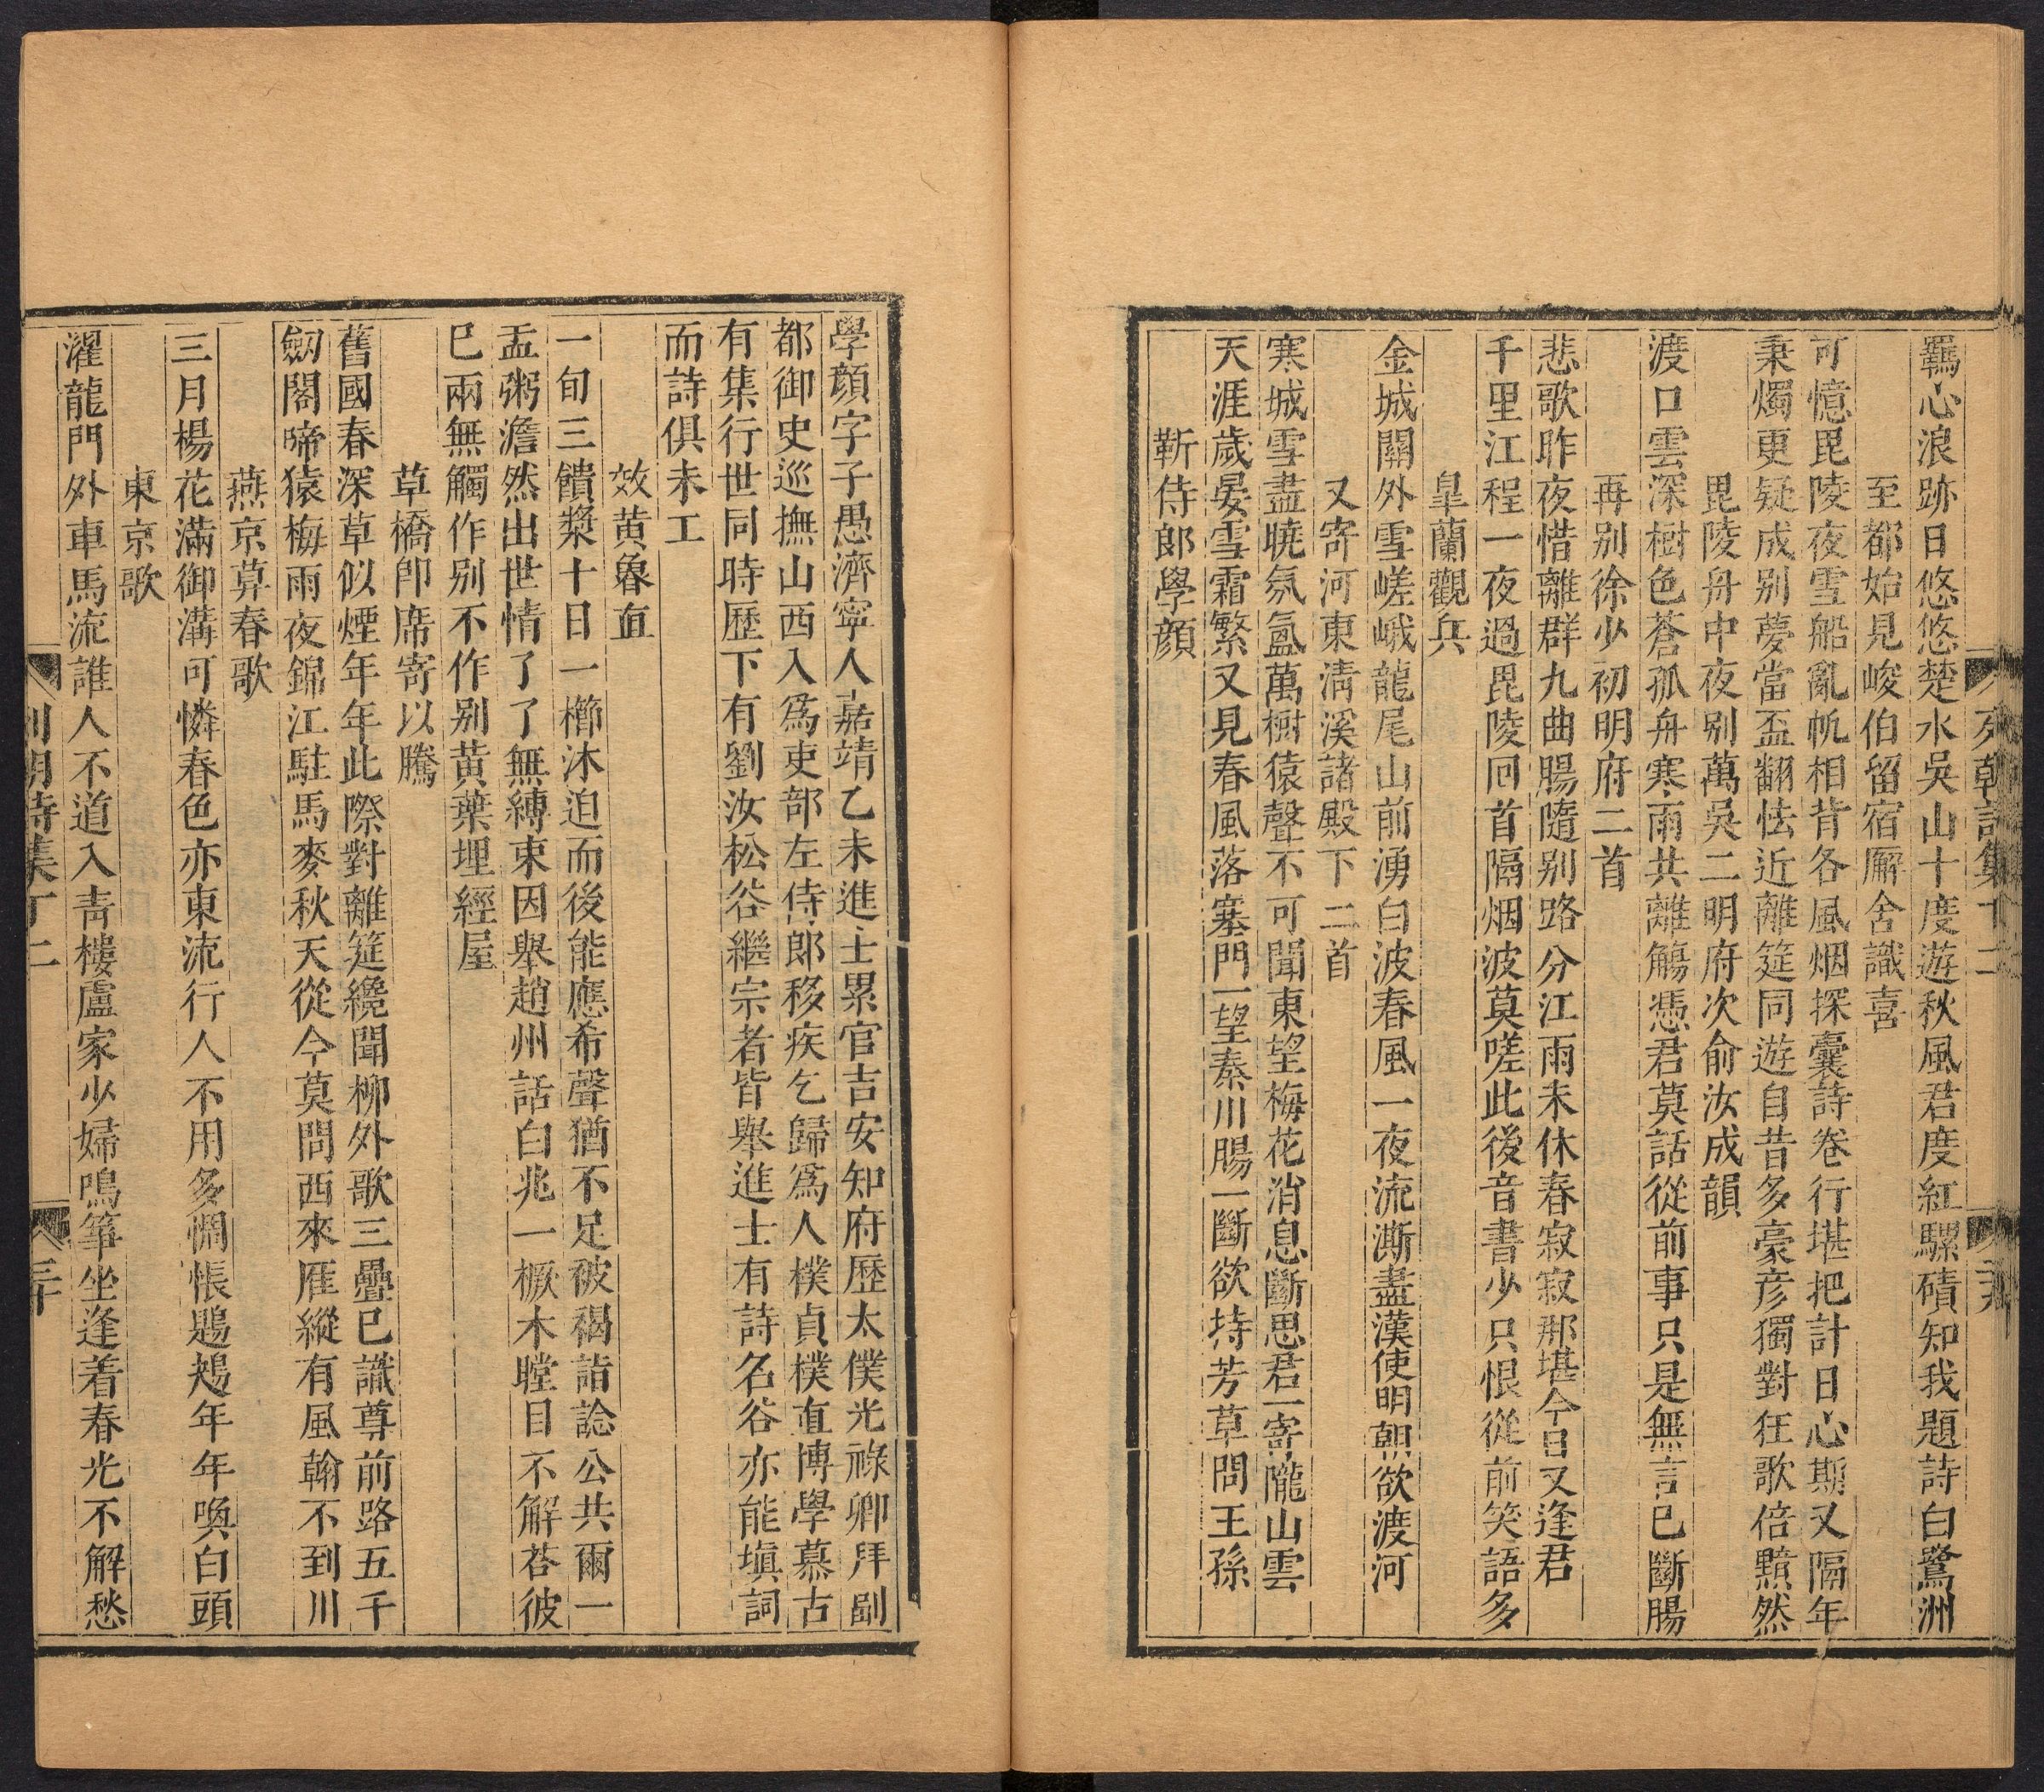 羈心浪跡日悠悠楚水吳山十度遊秋風君度紅騾磧知我題詩白鷺洲
至都始見峻伯留宿廨舍識喜
可憶毘陵夜雪船亂帆相背各風烟探囊詩卷行堪把計日心期又隔年
秉燭更疑成別夢當盃翻怯近離筵同遊自昔多豪彥獨對狂歌倍黯然
毘陵舟中夜別萬吳二明府次俞汝成韻
渡口雲深樹色蒼孤舟寒雨共離觴憑君莫話從前事只是無言已斷腸
再別徐少初明府二首
悲歌昨夜惜離群九曲腸隨別路分江雨未休春寂寂那堪今日又逢君
千里江程一夜過毘陵回首隔烟波莫嗟此後音書少只恨從前笑語多
皐蘭觀兵
金城關外雪嵯峨龍尾山前湧白波春風一夜流澌盡漢使明朝欲渡河
又寄河東清溪諸殿下二首
寒城雪盡曉氛氳萬樹猿聲不可聞東望梅花消息斷思君一寄隴山雲
天涯歲晏雪霜繁又見春風落塞門一望秦川腸一斷欲持芳草問王孫
靳侍郎學顏
學顏字子愚濟寧人嘉靖乙未進士累官吉安知府歷太僕光祿卿拜副
都御史巡撫山西入爲吏部左侍郎移疾乞歸爲人樸貞樸直博學慕古
有集行世同時歷下有劉汝松谷繼宗者皆舉進士有詩名谷亦能塡詞
而詩俱未工
效黄魯直
一旬三饋漿十日一櫛沐迫而後能應希聲猶不足破褐詣諗公共爾一
盂粥澹然出世情了了無縛束因舉趙州話白兆一橛木瞠目不解荅彼
已兩無觸作別不作別黄葉埋經屋
草橋卽席寄以騰
舊國春深草似煙年年此際對離筵纔聞柳外歌三疊已識尊前路五千
劒閣啼猿梅雨夜錦江駐馬麥秋天從今莫問西來雁縱有風翰不到川
燕京莫春歌
三月楊花滿御溝可憐春色亦東流行人不用多惆悵鶗鴂年年喚白頭
東京歌
濯龍門外車馬流誰人不道入青樓盧家少婦鳴箏坐逢着春光不解愁
列朝詩集丁二
三十